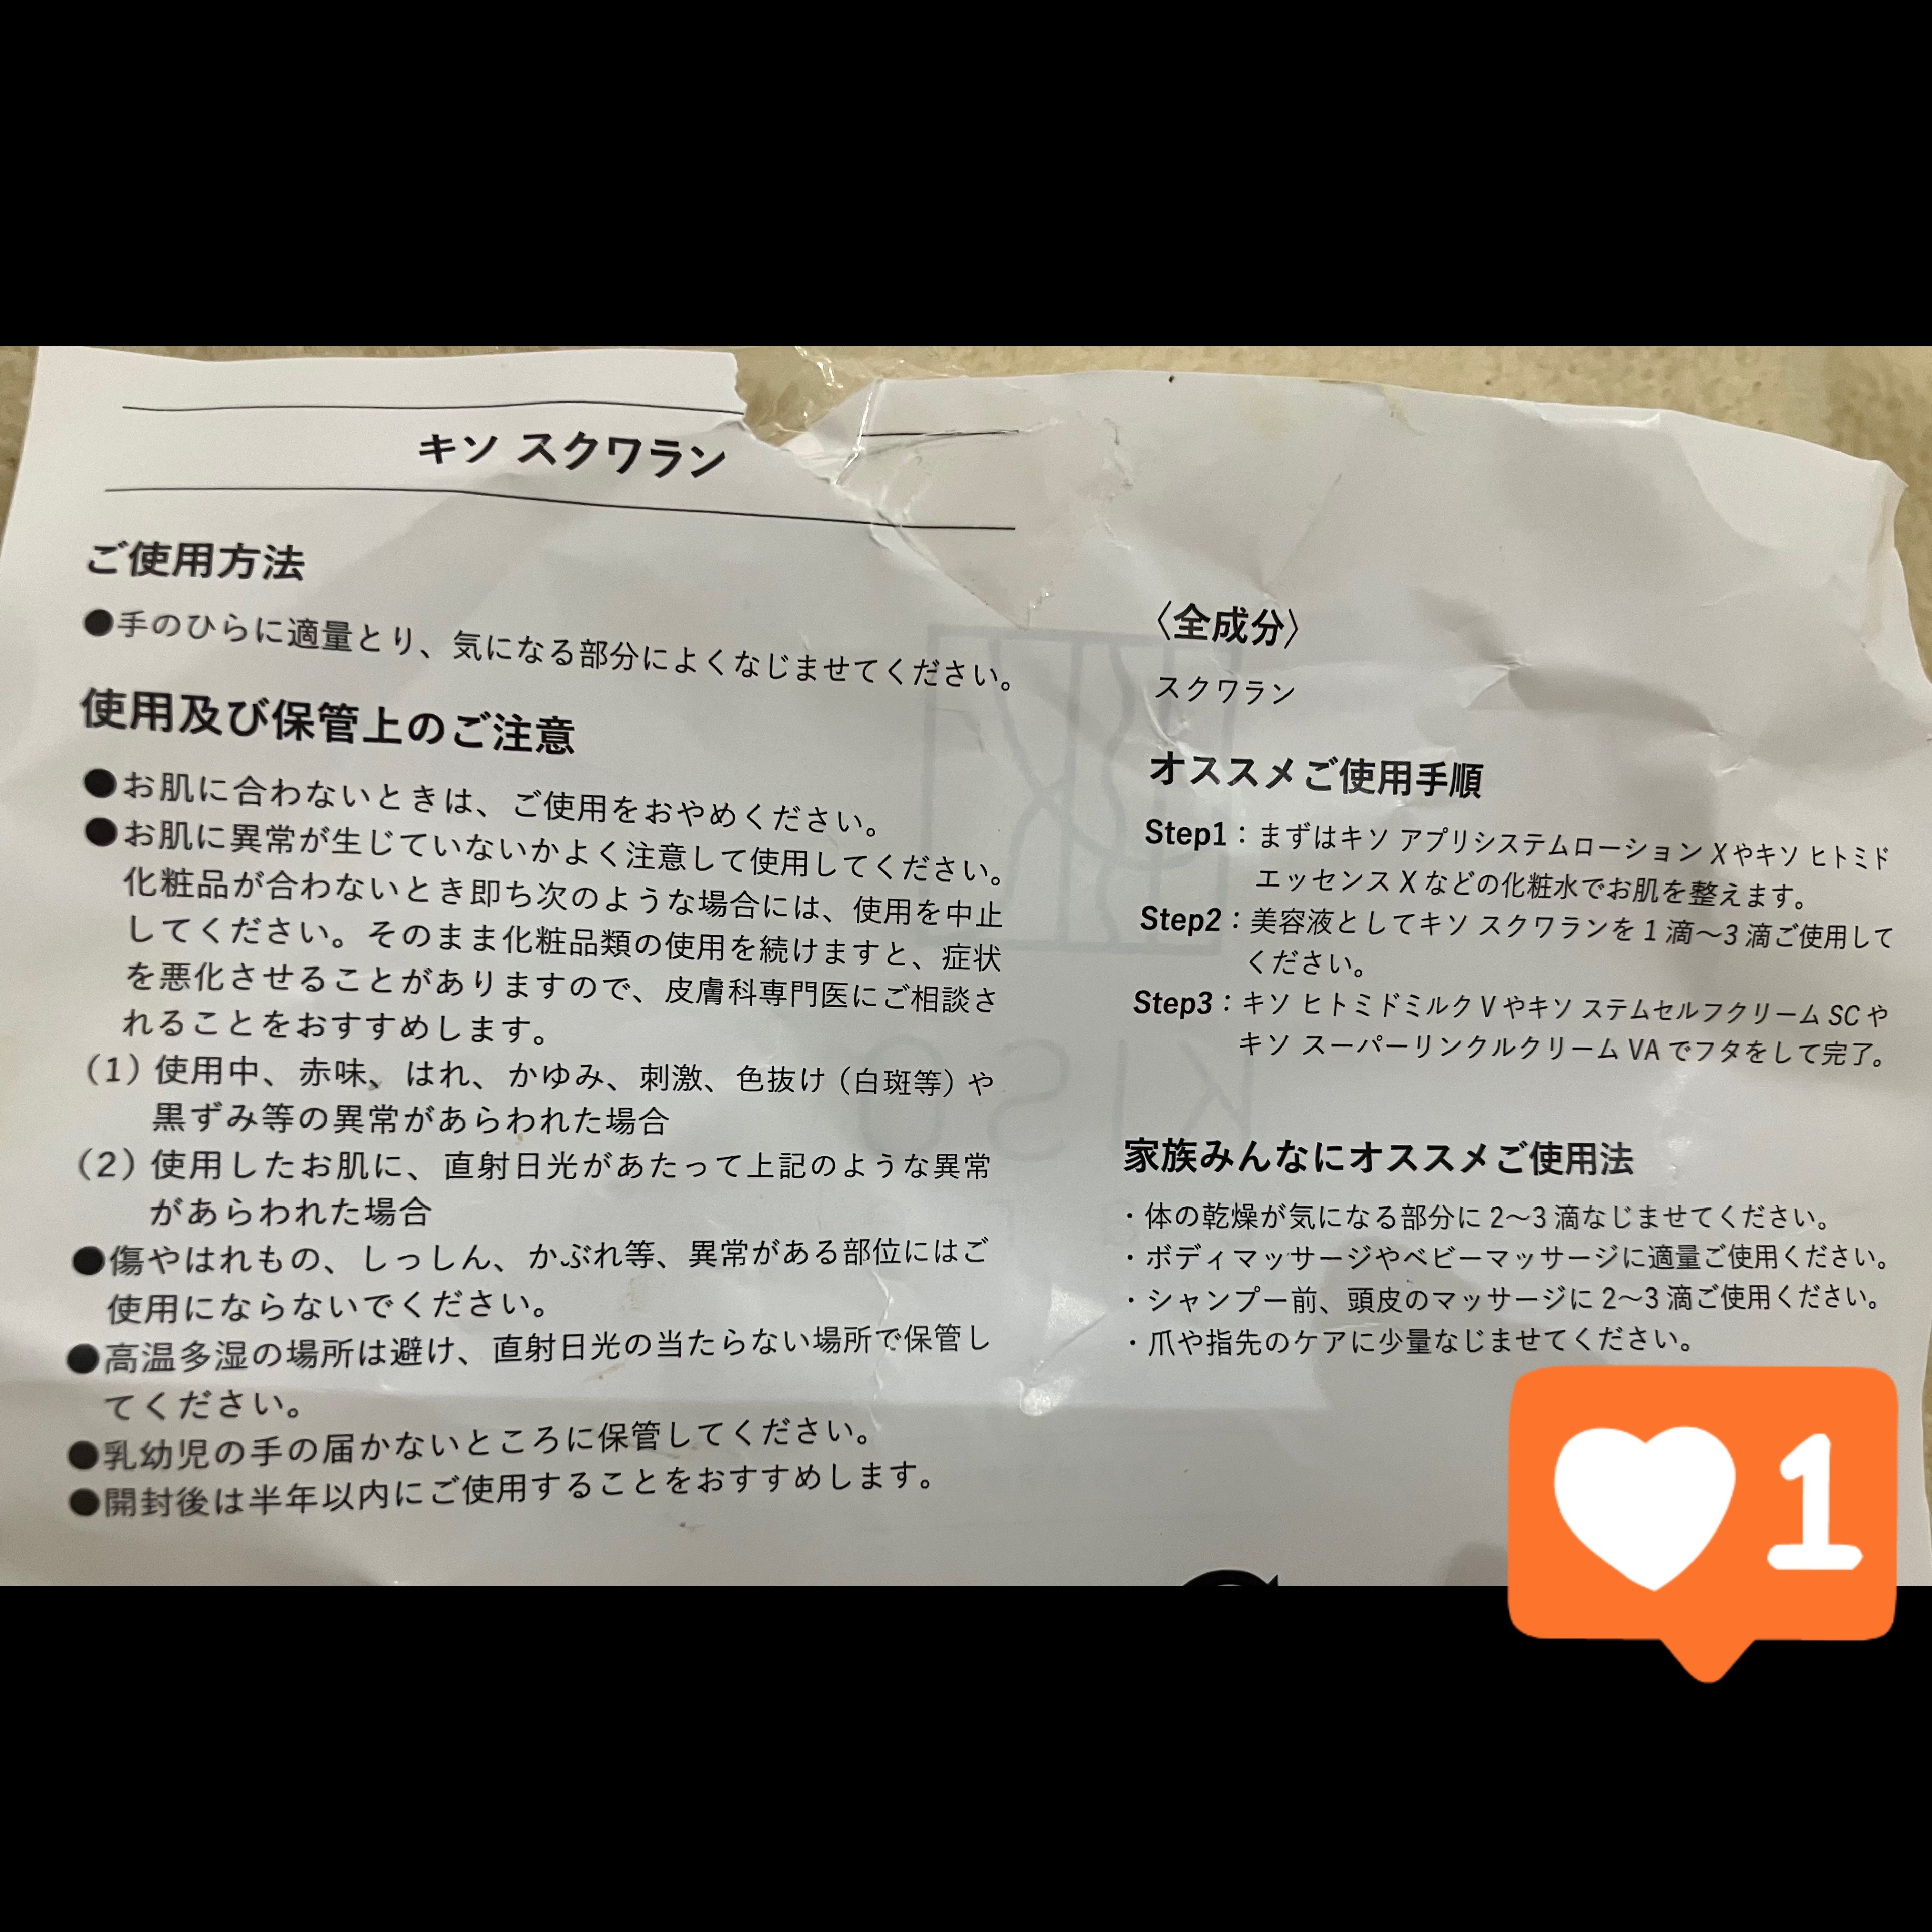 キソ スクワラン
ご使用方法
●手のひらに適量とり、気になる部分によくなじませてください。
使用及び保管上のご注意
●お肌に合わないときは、ご使用をおやめください。
●お肌に異常が生じていないかよく注意して使用してください。
化粧品が合わないとき即ち次のような場合には、使用を中止
してください。そのまま化粧品類の使用を続けますと、症状
を悪化させることがありますので、皮膚科専門医にご相談さ
れることをおすすめします。
(1) 使用中、赤味、はれ、かゆみ、刺激、色抜け(白斑等)や
黒ずみ等の異常があらわれた場合
(2) 使用したお肌に、直射日光があたって上記のような異常
があらわれた場合
●傷やはれもの、しっしん、かぶれ等、異常がある部位にはご
使用にならないでください。
●高温多湿の場所は避け、直射日光の当たらない場所で保管し
てください。
●乳幼児の手の届かないところに保管してください。
●開封後は半年以内にご使用することをおすすめします。
〈全成分〉
スクワラン
オススメご使用手順
Step1:まずはキソ アプリシステムローション Xやキソ ヒトミド
エッセンス X などの化粧水でお肌を整えます。
Step2:美容液としてキソ スクワランを 1 滴〜3 滴ご使用して
ください。
Step3:キソ ヒトミドミルク V やキソ ステムセルフクリーム SC や
キソ スーパーリンクルクリーム VA でフタをして完了。
家族みんなにオススメご使用法
・体の乾燥が気になる部分に 2〜3 滴なじませてください。
・ボディマッサージやベビーマッサージに適量ご使用ください。
・シャンプー前、頭皮のマッサージに 2〜3 滴ご使用ください。
・爪や指先のケアに少量なじませてください。
KISO
1